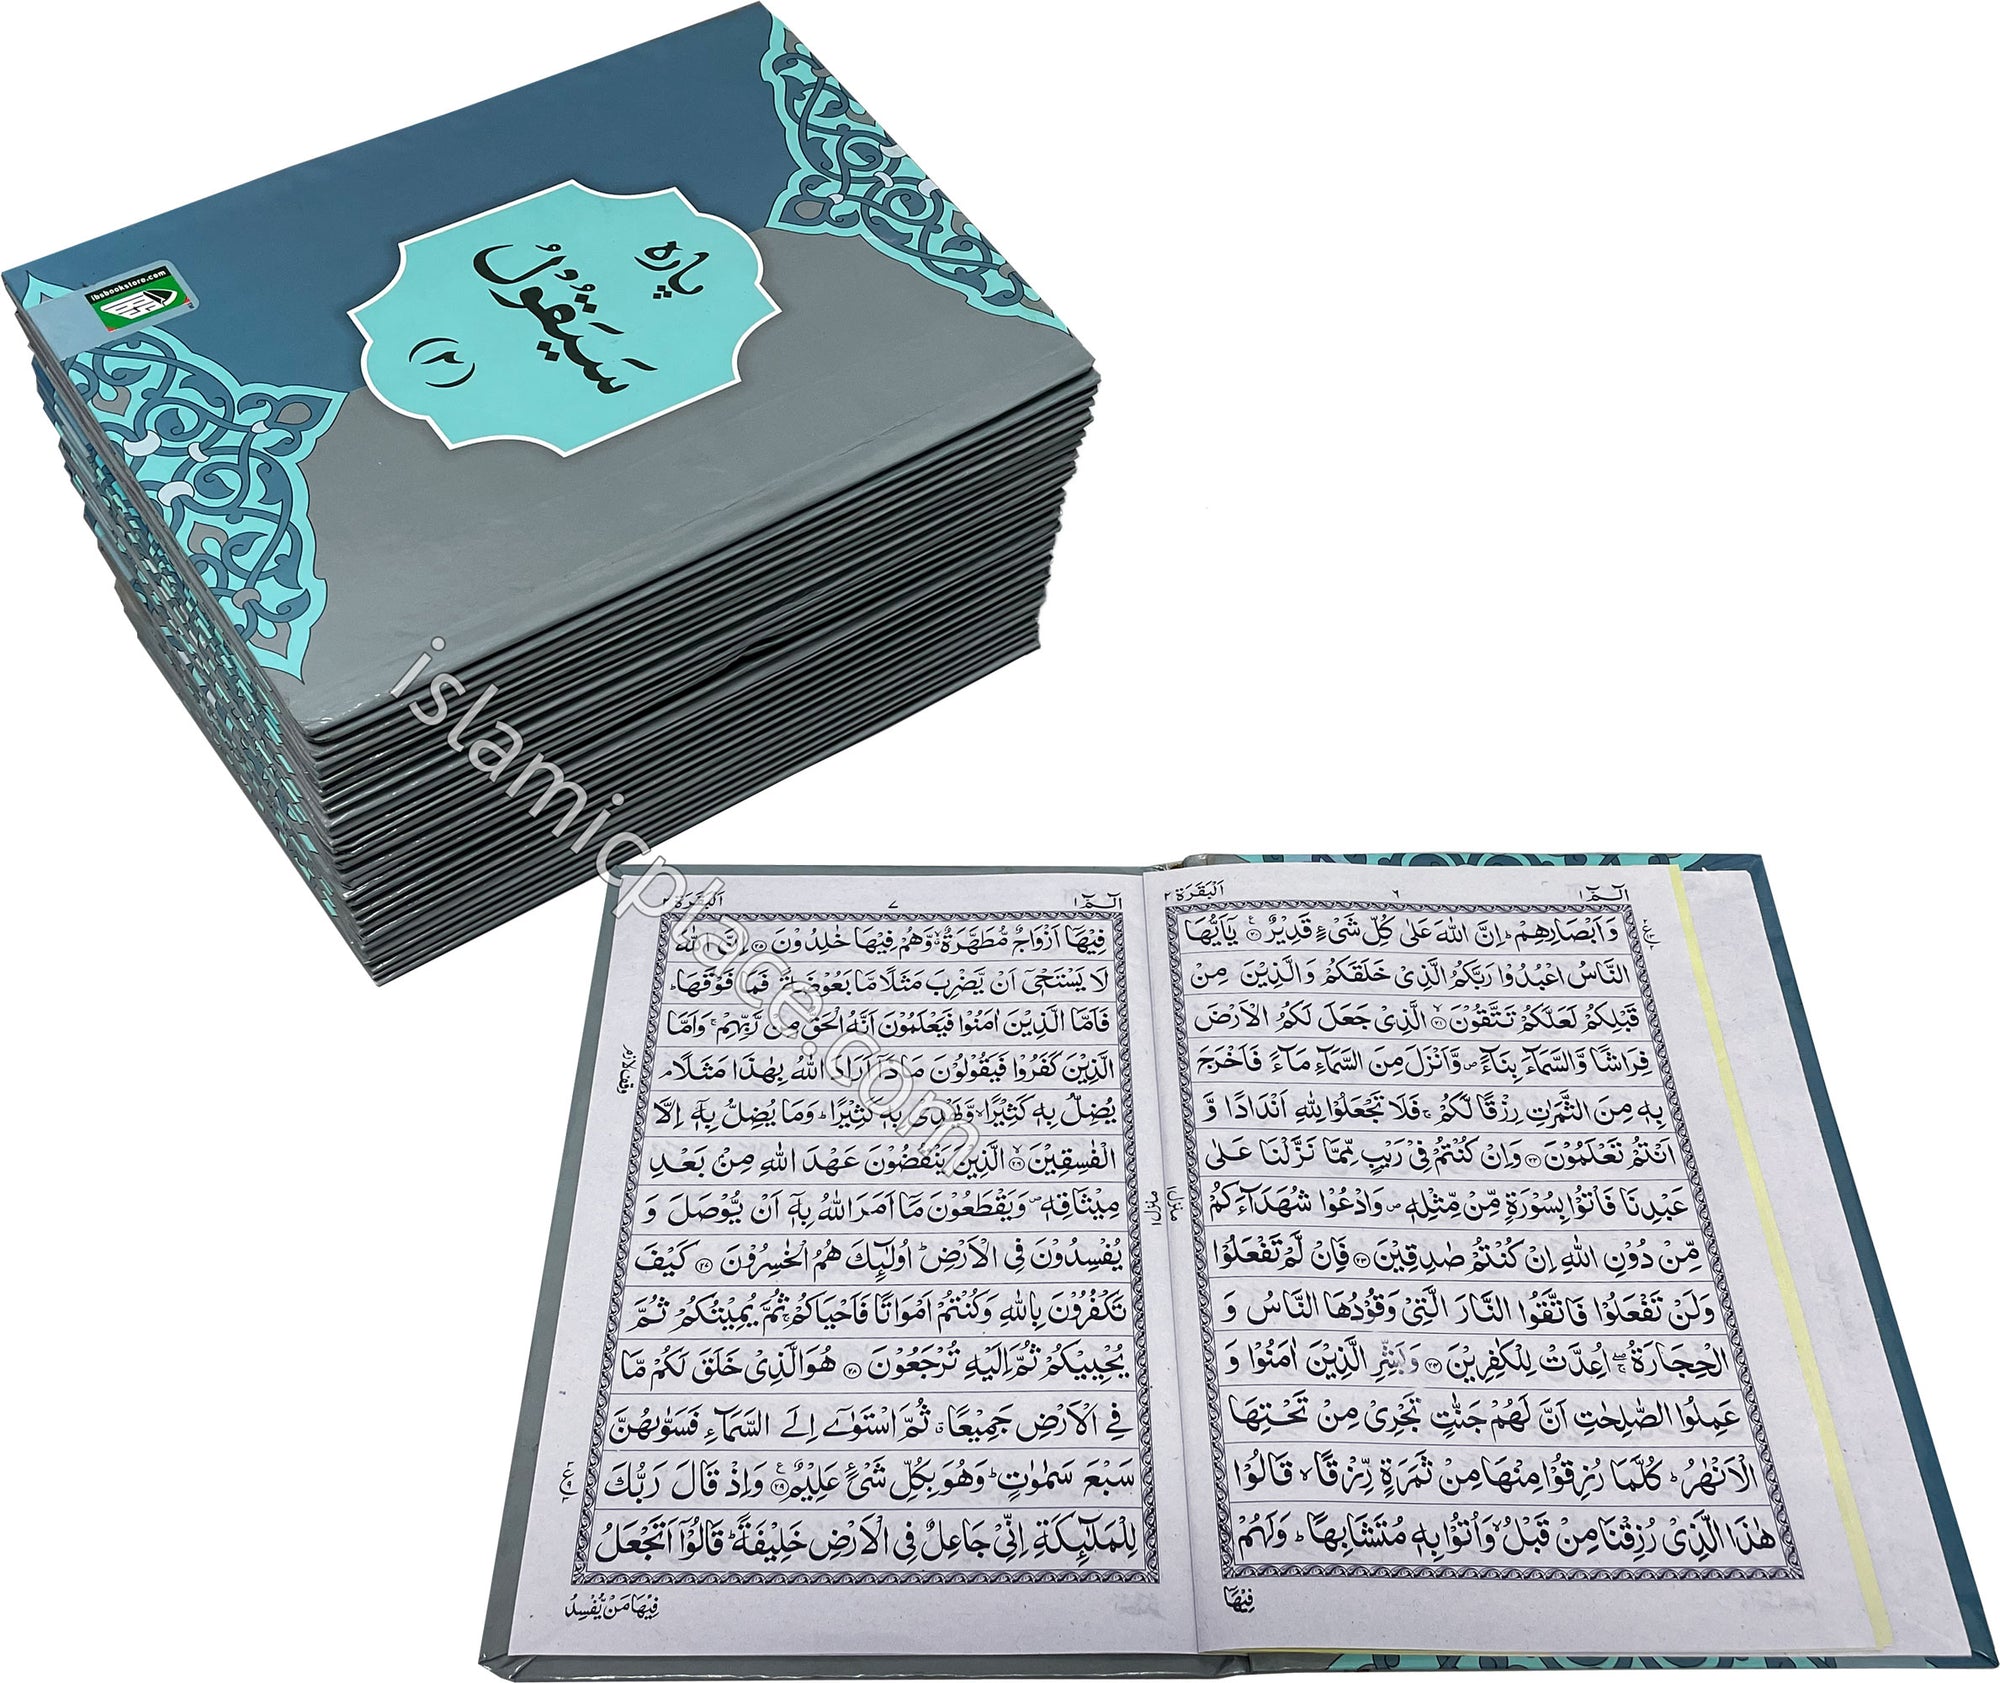 پاره
سَيَقُوۡلُ
(٢)
ibsbookstore.com
islamicplace.com
الٓـمّٓ ١
٦
اَلۡبَقَرَة ٢
وَاَبۡصَارِهِمۡؕ اِنَّ اللّٰهَ عَلٰى كُلِّ شَىۡءٍ قَدِيۡرٌ ﴿٢٠﴾ يٰٓاَيُّهَا
النَّاسُ اعۡبُدُوۡا رَبَّكُمُ الَّذِىۡ خَلَقَكُمۡ وَالَّذِيۡنَ مِنۡ
قَبۡلِكُمۡ لَعَلَّكُمۡ تَتَّقُوۡنَ ﴿٢١﴾ الَّذِىۡ جَعَلَ لَكُمُ الۡاَرۡضَ
فِرَاشًا وَّالسَّمَآءَ بِنَآءً ۖ وَّاَنۡزَلَ مِنَ السَّمَآءِ مَآءً فَاَخۡرَجَ
بِهٖ مِنَ الثَّمَرٰتِ رِزۡقًا لَّكُمۡ ۚ فَلَا تَجۡعَلُوۡا لِلّٰهِ اَنۡدَادًا وَّ
اَنۡتُمۡ تَعۡلَمُوۡنَ ﴿٢٢﴾ وَاِنۡ كُنۡتُمۡ فِىۡ رَيۡبٍ مِّمَّا نَزَّلۡنَا عَلٰى
عَبۡدِنَا فَاۡتُوۡا بِسُوۡرَةٍ مِّنۡ مِّثۡلِهٖ ۖ وَادۡعُوۡا شُهَدَآءَكُمۡ
مِّنۡ دُوۡنِ اللّٰهِ اِنۡ كُنۡتُمۡ صٰدِقِيۡنَ ﴿٢٣﴾ فَاِنۡ لَّمۡ تَفۡعَلُوۡا
وَلَنۡ تَفۡعَلُوۡا فَاتَّقُوا النَّارَ الَّتِىۡ وَقُوۡدُهَا النَّاسُ وَ
الۡحِجَارَةُ ۖۚ اُعِدَّتۡ لِلۡكٰفِرِيۡنَ ﴿٢٤﴾ وَبَشِّرِ الَّذِيۡنَ اٰمَنُوۡا وَ
عَمِلُوا الصّٰلِحٰتِ اَنَّ لَهُمۡ جَنّٰتٍ تَجۡرِىۡ مِنۡ تَحۡتِهَا
الۡاَنۡهٰرُؕ كُلَّمَا رُزِقُوۡا مِنۡهَا مِنۡ ثَمَرَةٍ رِّزۡقًا ۙ قَالُوۡا
هٰذَا الَّذِىۡ رُزِقۡنَا مِنۡ قَبۡلُ ۙ وَاُتُوۡا بِهٖ مُتَشَابِهًاؕ وَلَهُمۡ
فِيۡهَا
منزل ١
الٓـمّٓ ١
٧
اَلۡبَقَرَة ٢
فِيۡهَآ اَزۡوَاجٌ مُّطَهَّرَةٌ ۙ وَّهُمۡ فِيۡهَا خٰلِدُوۡنَ ﴿٢٥﴾ اِنَّ اللّٰهَ
لَا يَسۡتَحۡىٖۤ اَنۡ يَّضۡرِبَ مَثَلًا مَّا بَعُوۡضَةً فَمَا فَوۡقَهَاؕ
فَاَمَّا الَّذِيۡنَ اٰمَنُوۡا فَيَعۡلَمُوۡنَ اَنَّهُ الۡحَقُّ مِنۡ رَّبِّهِمۡ ۚ وَاَمَّا
الَّذِيۡنَ كَفَرُوۡا فَيَقُوۡلُوۡنَ مَاذَآ اَرَادَ اللّٰهُ بِهٰذَا مَثَلًا ۘ
يُضِلُّ بِهٖ كَثِيۡرًا ۙ وَّيَهۡدِىۡ بِهٖ كَثِيۡرًاؕ وَمَا يُضِلُّ بِهٖۤ اِلَّا
الۡفٰسِقِيۡنَ ۙ ﴿٢٦﴾ الَّذِيۡنَ يَنۡقُضُوۡنَ عَهۡدَ اللّٰهِ مِنۡۢ بَعۡدِ
مِيۡثَاقِهٖ ۖ وَيَقۡطَعُوۡنَ مَآ اَمَرَ اللّٰهُ بِهٖۤ اَنۡ يُّوۡصَلَ وَ
يُفۡسِدُوۡنَ فِى الۡاَرۡضِؕ اُولٰٓٮِٕكَ هُمُ الۡخٰسِرُوۡنَ ﴿٢٧﴾ كَيۡفَ
تَكۡفُرُوۡنَ بِاللّٰهِ وَكُنۡتُمۡ اَمۡوَاتًا فَاَحۡيَاكُمۡ ۚ ثُمَّ يُمِيۡتُكُمۡ ثُمَّ
يُحۡيِيۡكُمۡ ثُمَّ اِلَيۡهِ تُرۡجَعُوۡنَ ﴿٢٨﴾ هُوَ الَّذِىۡ خَلَقَ لَكُمۡ مَّا
فِى الۡاَرۡضِ جَمِيۡعًا ۚ ثُمَّ اسۡتَوٰٓى اِلَى السَّمَآءِ فَسَوّٰٮهُنَّ
سَبۡعَ سَمٰوٰتٍؕ وَهُوَ بِكُلِّ شَىۡءٍ عَلِيۡمٌ ﴿٢٩﴾ وَاِذۡ قَالَ رَبُّكَ
لِلۡمَلٰٓٮِٕكَةِ اِنِّىۡ جَاعِلٌ فِى الۡاَرۡضِ خَلِيۡفَةً ؕ قَالُوۡٓا اَتَجۡعَلُ
فِيۡهَا مَنۡ يُّفۡسِدُ
وقف لازم